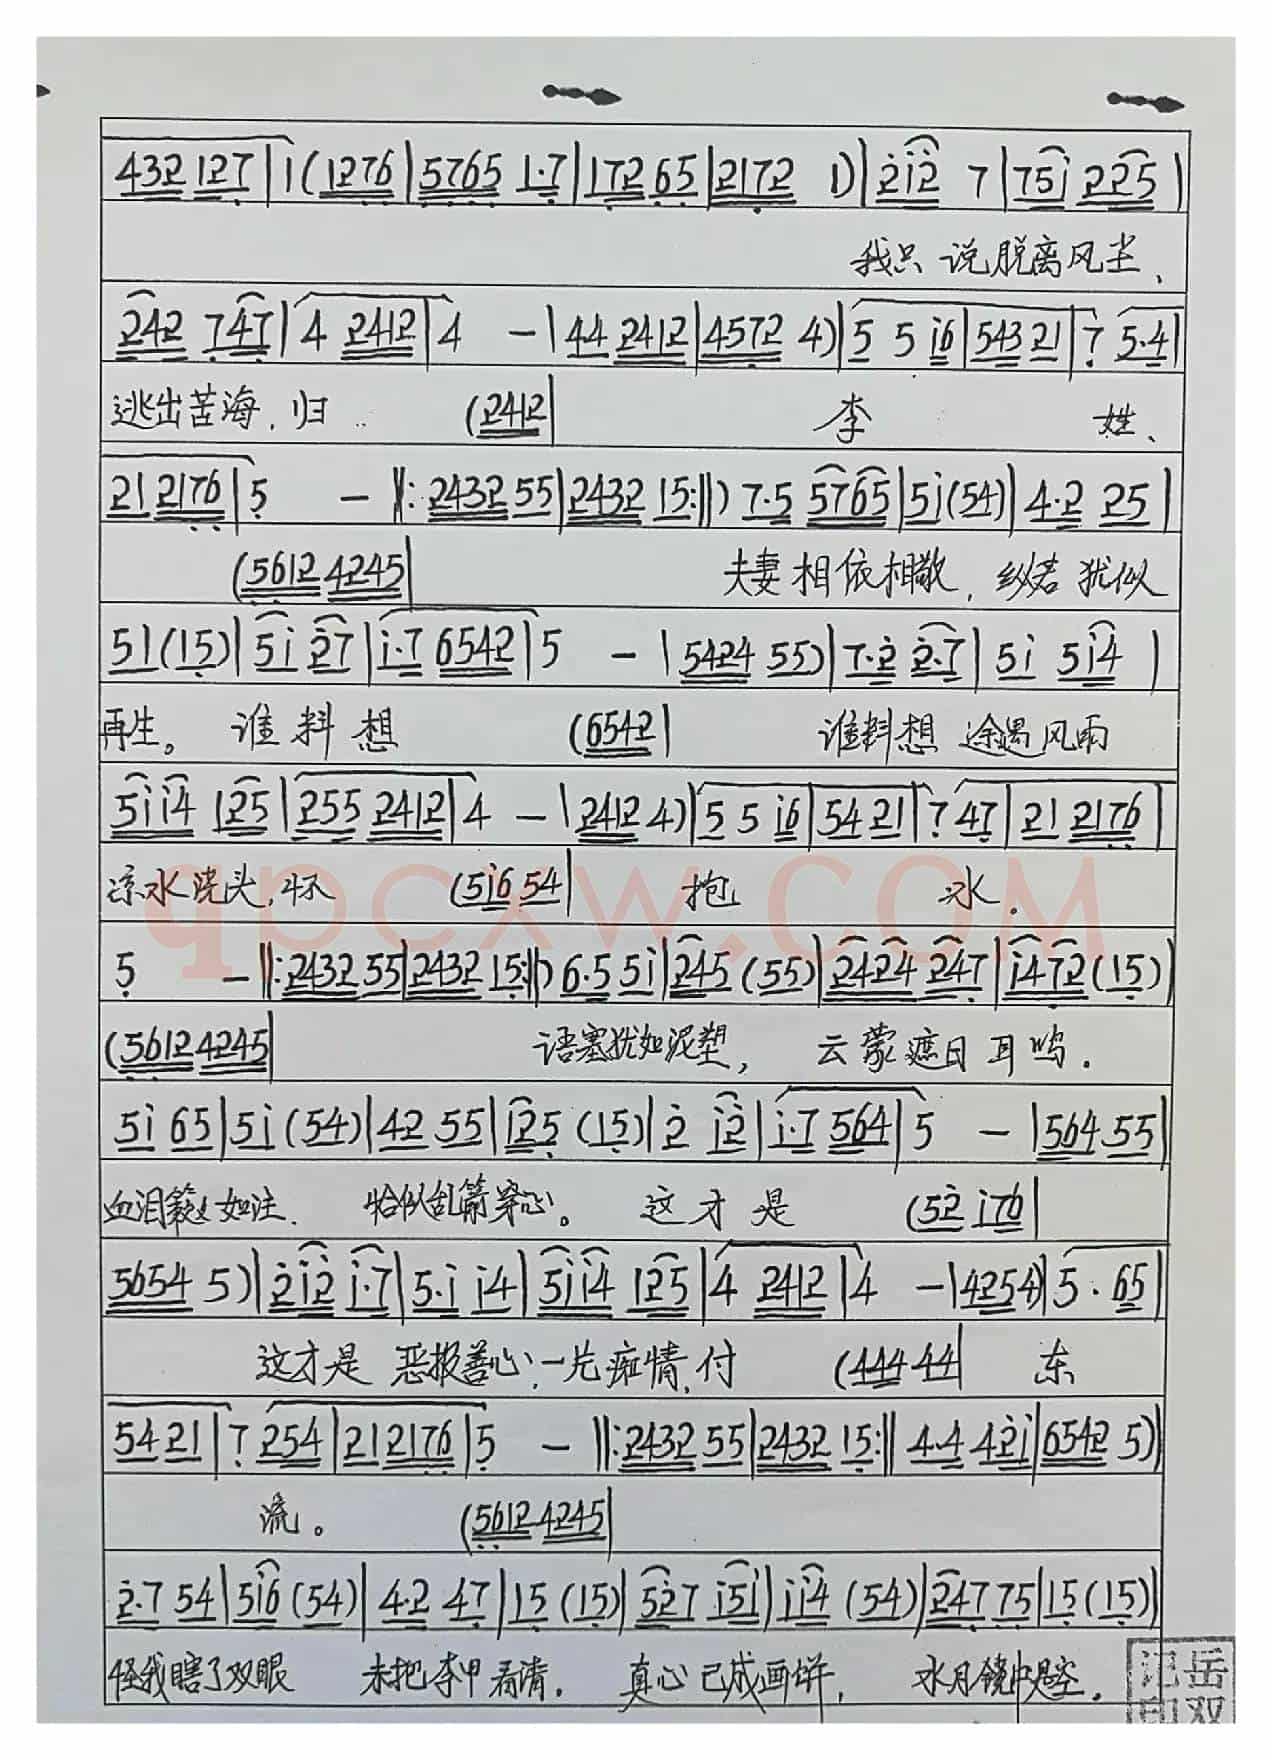 432 127 | i (1276 | 5765 1·7 | 172 65 | 2172 1) | 2i2 7 | 75i 225 |
我只说脱离风尘、
242 747 | 4 2412 | 4 - | 44 2412 | 4572 4) | 5 5 i6 | 543 21 | 7 5·4 |
逃出苦海,归 (2412| 李 姓、
21 2176 | 5 - ‖: 2432 55 | 2432 15 :‖) 7·5 5765 | 5i (54) | 4·2 25 |
(5612 4245| 夫妻相依相敬, 纵若犹似
51 (15) | 5i 27 | i·7 6542 | 5 - | 5424 55) | 7·2 2·7 | 5i 5i4 |
再生。 谁料想 (6542| 谁料想 途遇风雨
5ii4 125 | 255 2412 | 4 - | 2412 4) | 5 5 i6 | 54 21 | 7 47 | 21 2176 |
凉水浇头,怀 (5i6 54| 抱 冰.
qpcxw.COM
5 - ‖: 2432 55 | 2432 15 :‖) 6·5 5i | 245 (55) | 2424 247 | i472 (15) |
(5612 4245| 语塞犹如泥塑, 云蒙遮日耳鸣.
5i 65 | 5i (54) | 42 55 | i25 (15) | 2 i2 | i·7 564 | 5 - | 564 55 |
血泪簌簌如注. 恰似乱箭穿心。 这才是 (52 i76|
5654 5) | 2i2 i·7 | 5·i i4 | 5ii4 125 | 4 2412 | 4 - | 4254) | 5 · 65 |
这才是 恶报善心,一片痴情,付 (444 44| 东
54 21 | 7 254 | 21 2176 | 5 - ‖: 2432 55 | 2432 15 :‖ 4·4 42i | 6542 5) |
流。 (5612 4245|
2·7 54 | 5i6 (54) | 4·2 47 | 15 (15) | 527 i5i | ii4 (54) | 247 75 | 15 (15) |
怪我瞎了双眼 未把李甲看清. 真心已成画饼, 水月镜中是空.
岳双
记印